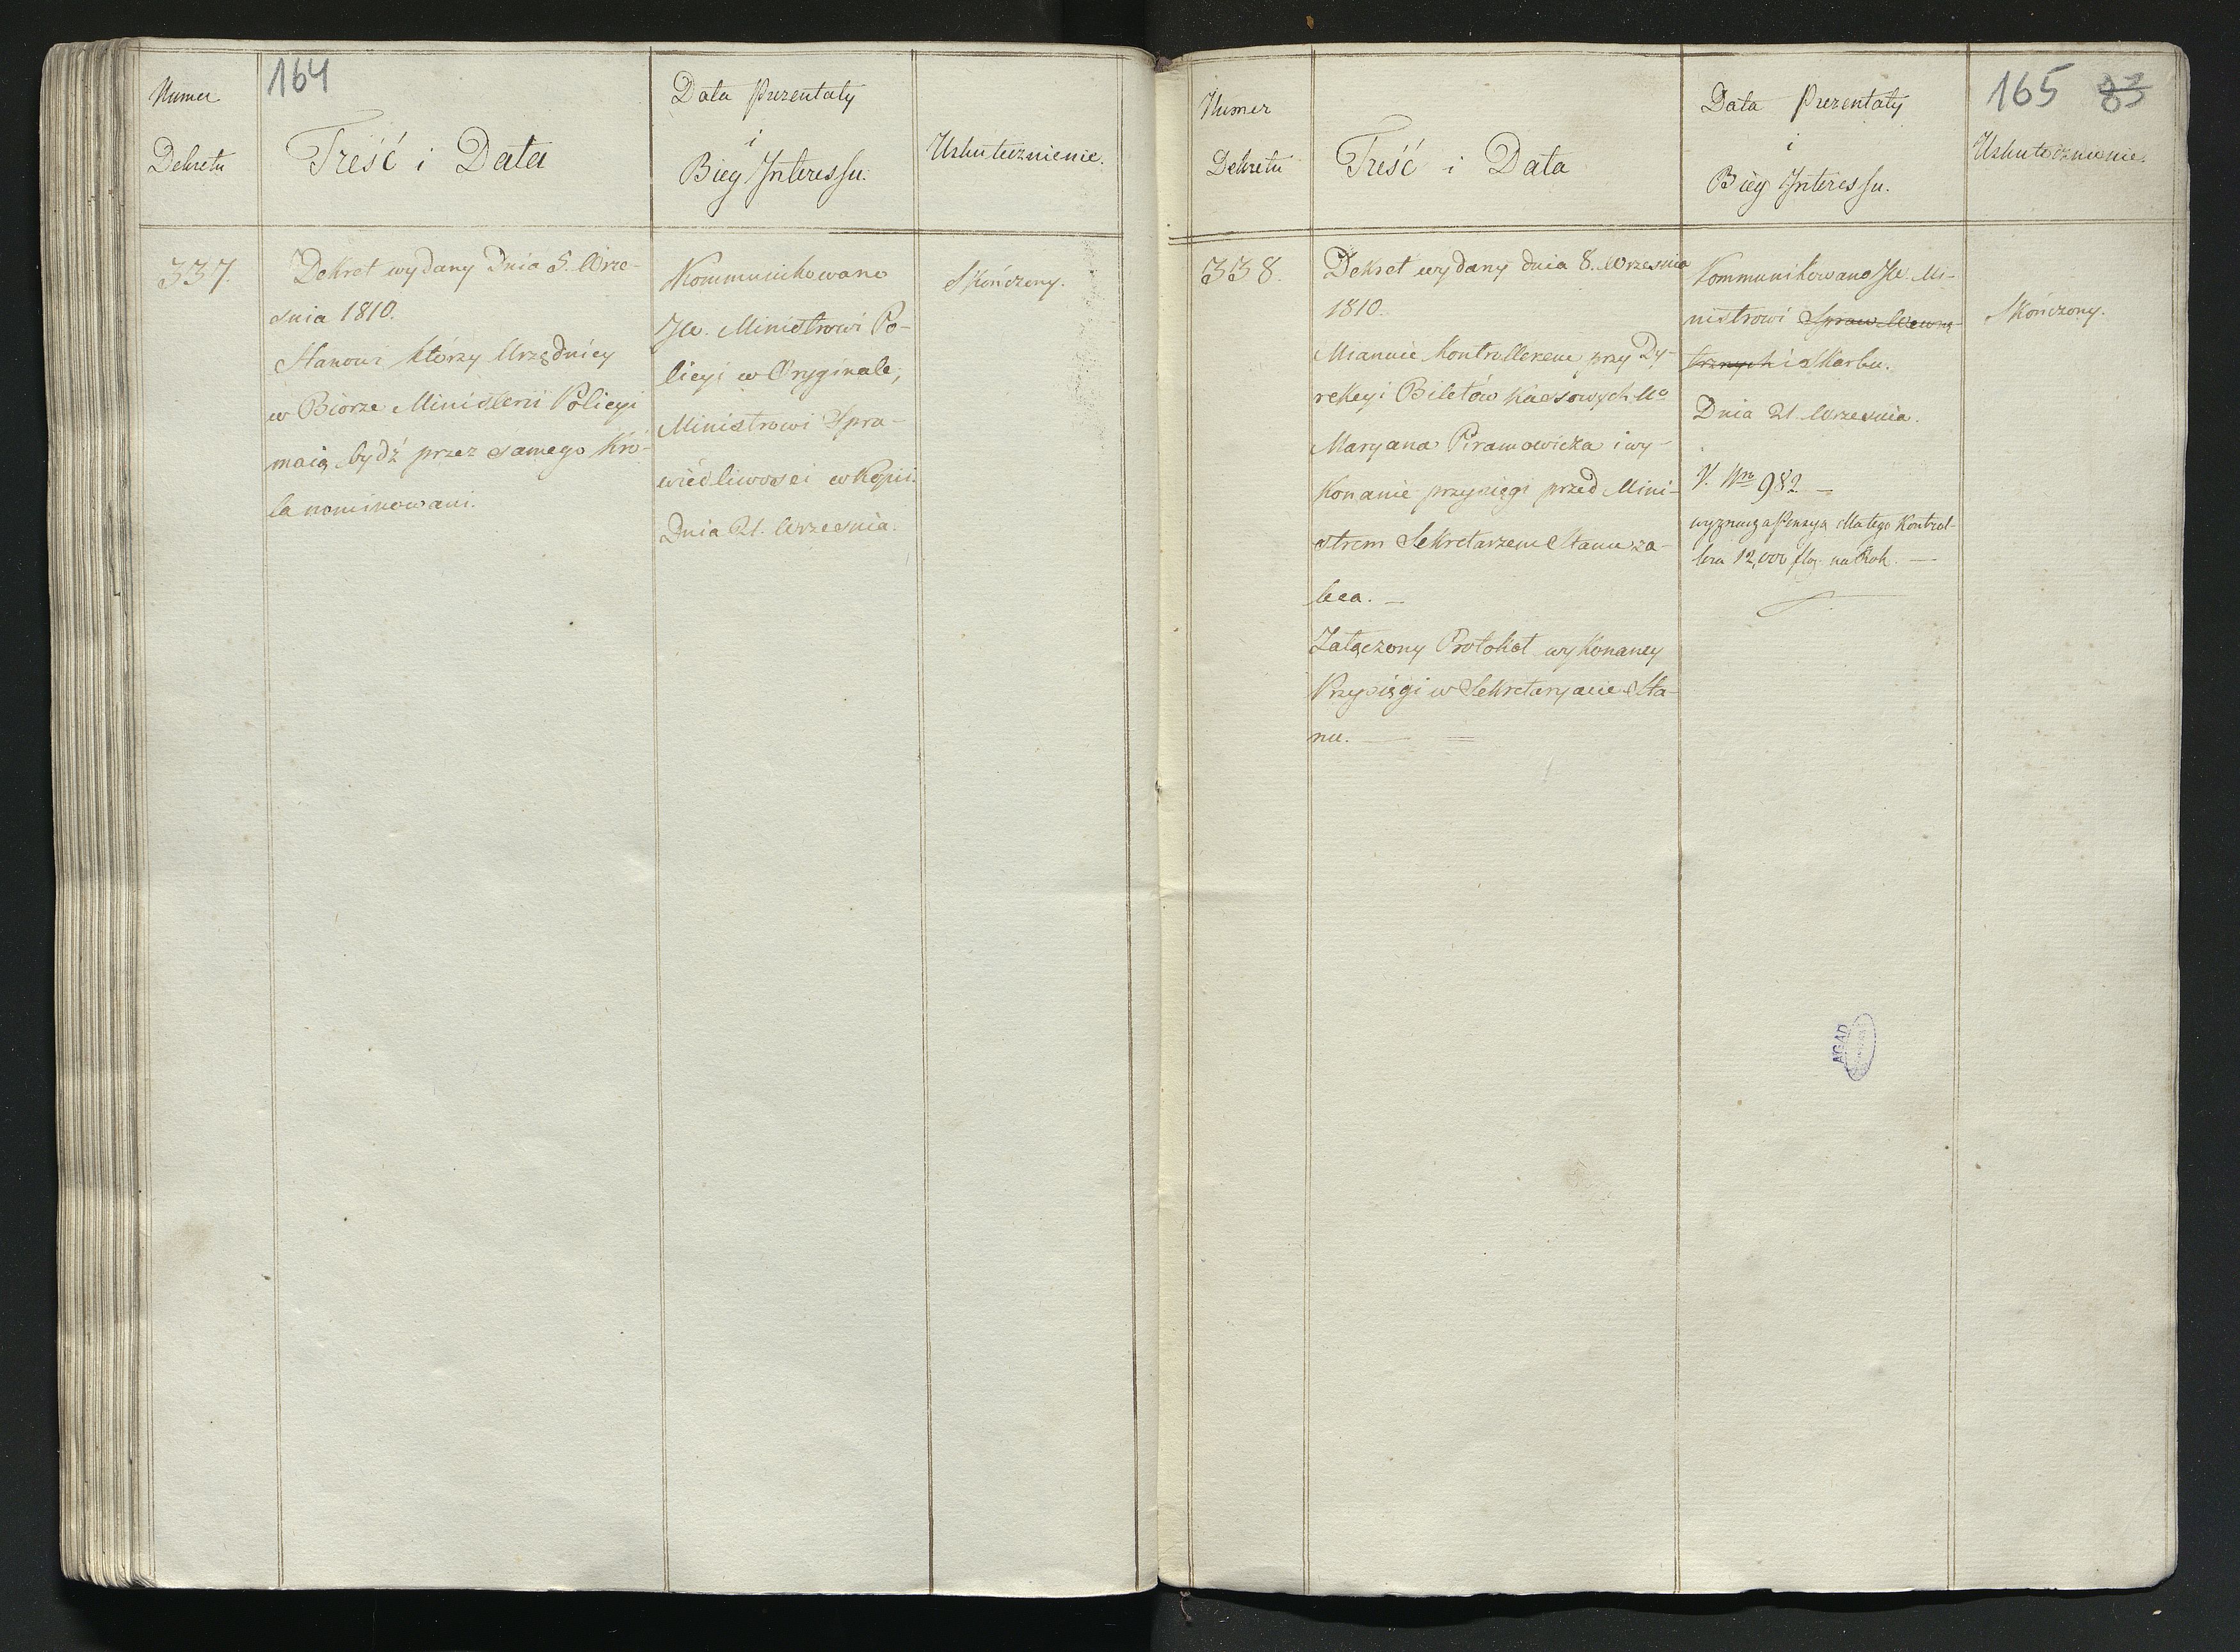 164
Numer
Dekretu
Treść i Data
Data Prezentaty
i
Bieg Interessu.
Uskutecznienie.
337.
Dekret wydany Dnia 5. Wrze-
śnia 1810.
Stanowi którzy Urzędnicy
w Biorze Ministerii Policyi
maią bydź przez samego Kró-
la nominowani.
Kommunikowano
JW. Ministrowi Po-
licyi w Oryginale,
Ministrowi Spra-
wiedliwości w Kopii.
Dnia 21. Września.
Skończony.
165 83
Numer
Dekretu
Treść i Data
Data Prezentaty
i
Bieg Interessu.
Uskutecznienie.
338.
Dekret wydany dnia 8. Września
1810.
Mianuie Kontrollerem przy Dy-
rekcyi Biletów Kassowych Uo
Maryana Piramowicza i wy-
konanie przysięgi przed Mini-
strem Sekretarzem Stanu za-
leca. —
Załączony Protokół wykonaney
Przysięgi w Sekretaryacie Sta-
nu. —
Kommunikowano JW. Mi-
nistrowi Spraw Wewnę-
trznych i Skarbu.
Dnia 21. Września.
V. Nro 982 —
wyznacza Pensyą dla tego Kontrol-
lera 12,000 flor. na Rok. —
Skończony.
AGAD